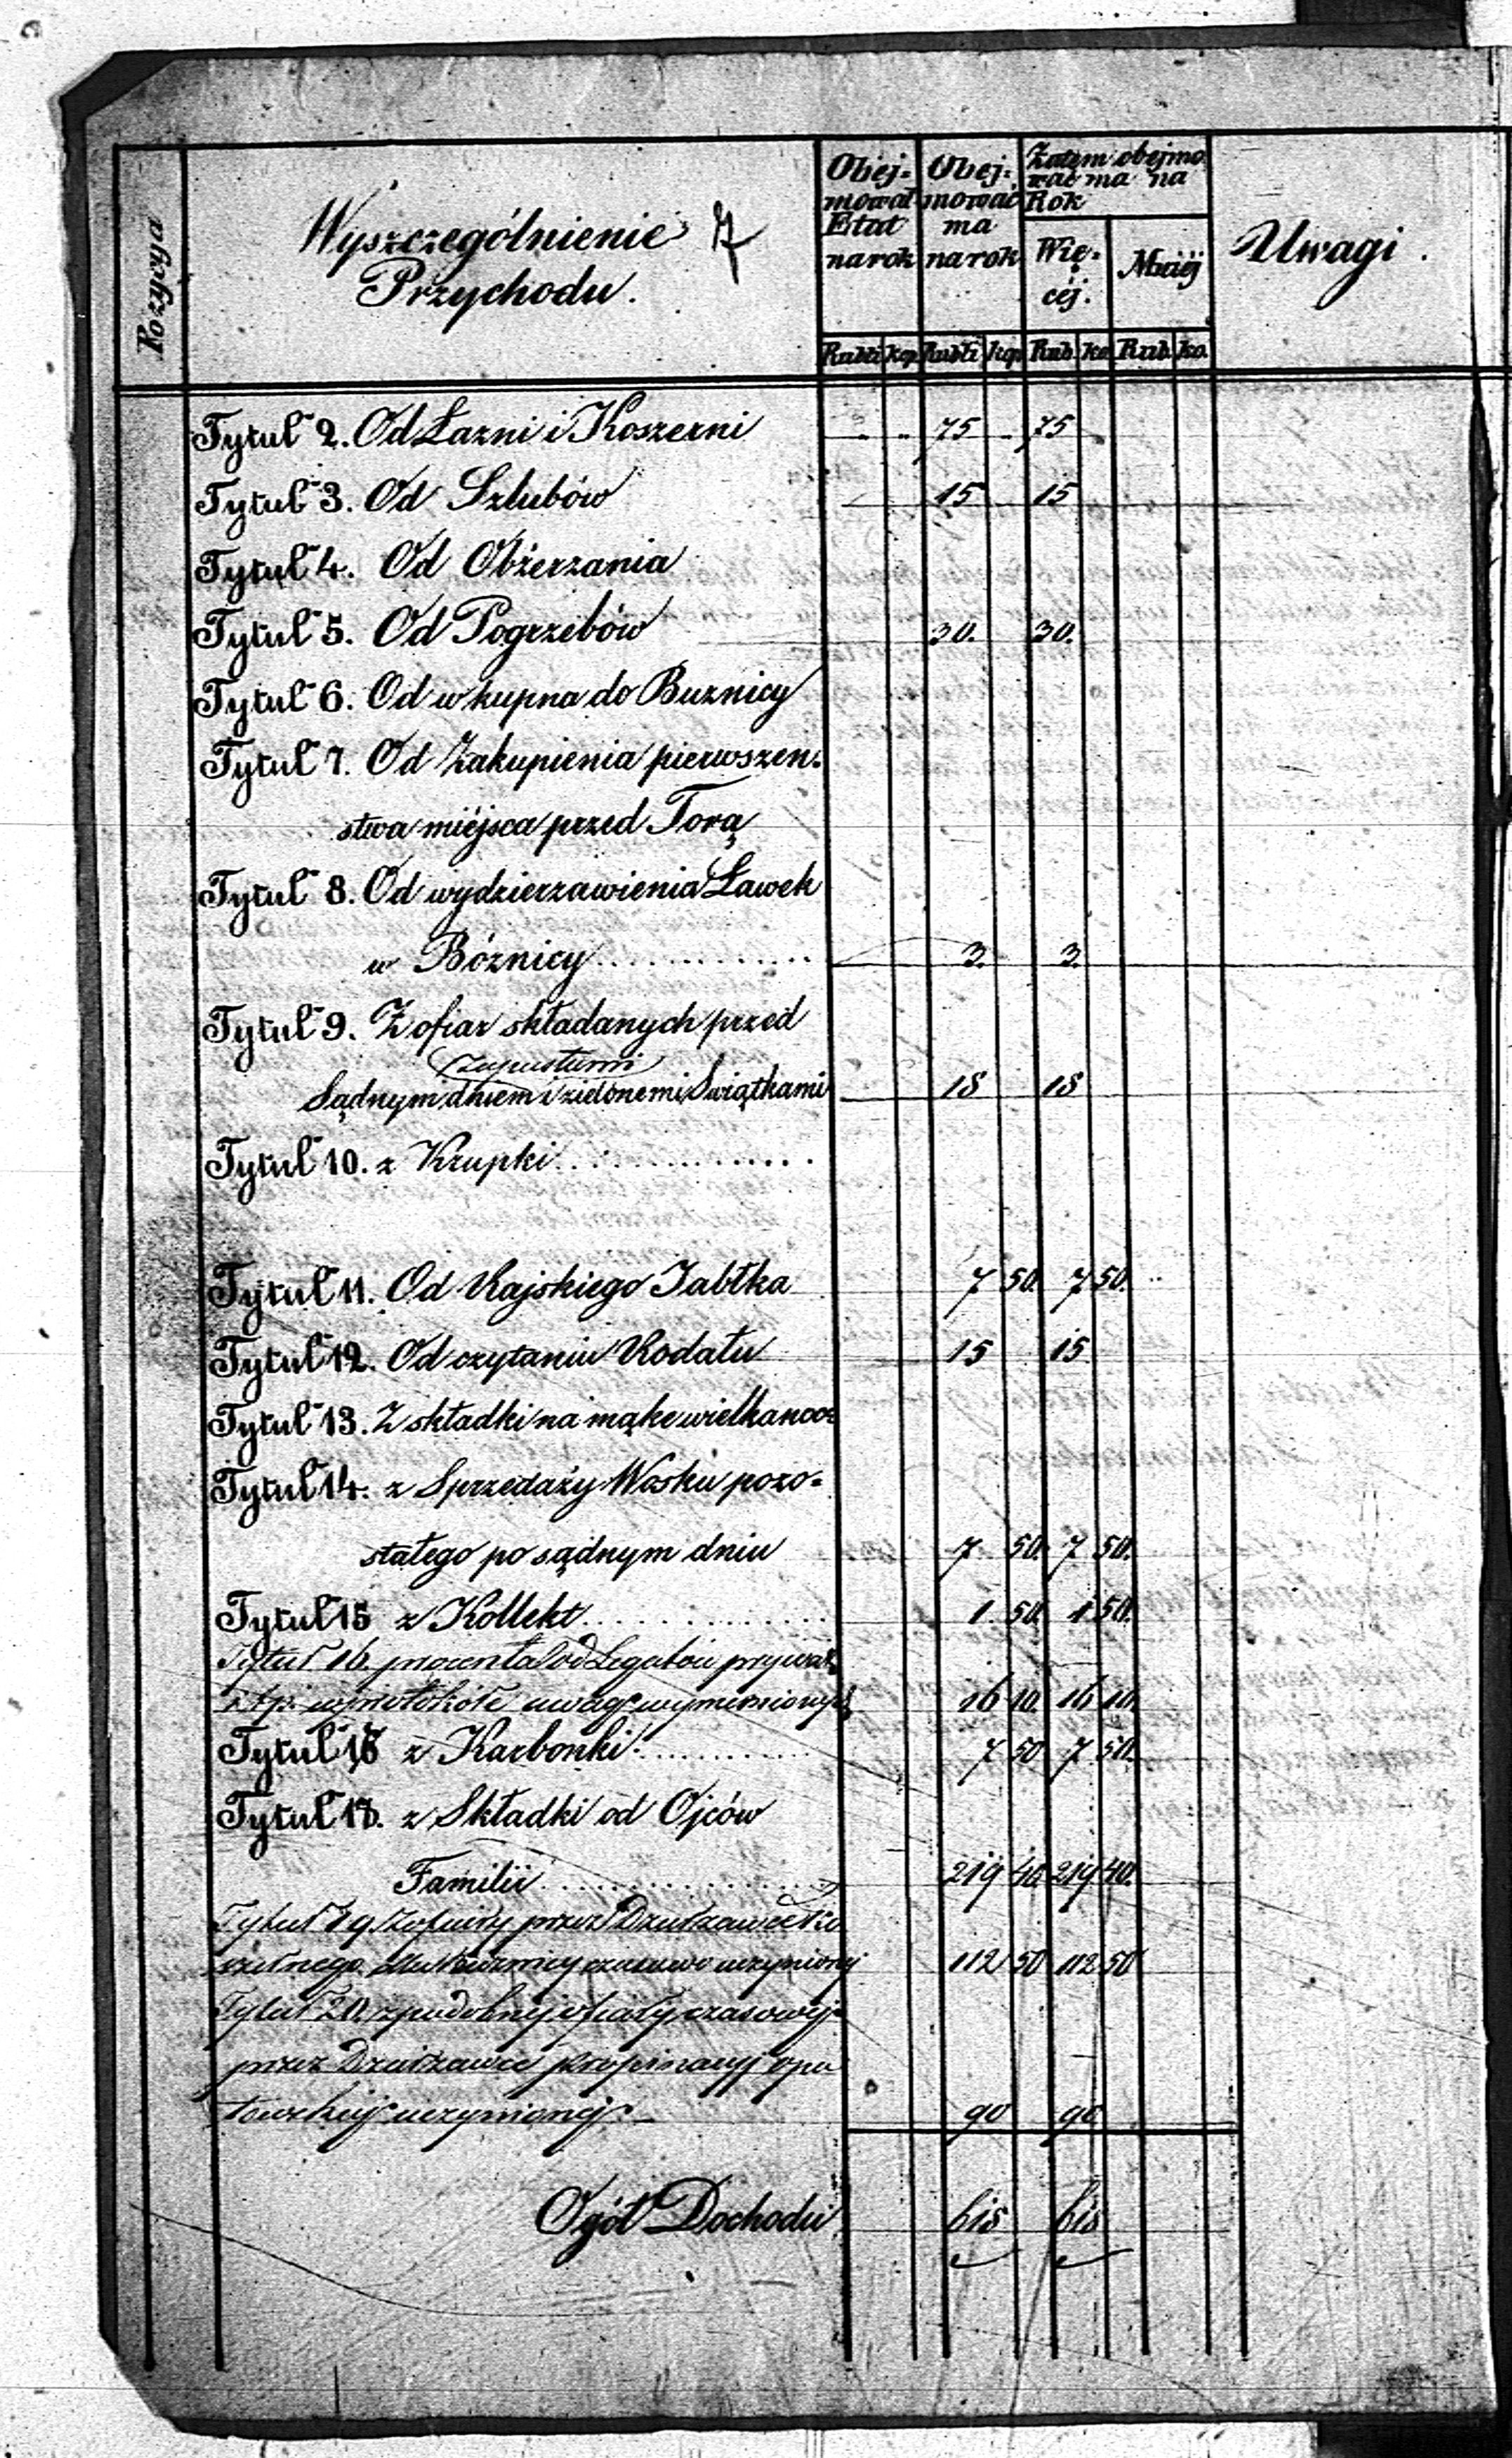 Pozycya
Wyszczególnienie
Przychodu.
7
Obej-
mował
Etat
na rok
Obej-
mować
ma
na rok
Zatem obejmo
wać ma na
Rok
Wię-
céj.
Mniéj
Uwagi.
Rubli kop Rubli kop Rub. ko Rub. ko.
Tytuł 2. Od Łazni i Koszerni 75 75
Tytuł 3. Od Szlubów 15 15
Tytuł 4. Od Obżerzania
Tytuł 5. Od Pogrzebów 30. 30.
Tytuł 6. Od w kupna do Buznicy
Tytuł 7. Od Zakupienia pierwszen-
stwa miéjsca przed Torą
Tytuł 8. Od wydzierzawienia Ławek
w Bóznicy 3. 3.
Tytuł 9. Z ofiar składanych przed
zapustami
Sądnym dniem i zielonemi Swiątkami 18 18
Tytuł 10. z Krupki
Tytuł 11. Od Rajskiego Jabłka 7 50. 7 50.
Tytuł 12. Od czytaniu Rodału 15 15
Tytuł 13. Z składki na mąke wielkanoc
Tytuł 14. z Sprzedaży Wosku pozo-
stałego po sądnym dniu 7 50. 7 50.
Tytuł 15 z Kollekt 1 50. 1 50.
Tytuł 16. procenta od Legatów prywat
w protokóle uwag wymienionych 16 10. 16 10.
Tytuł 17 z Karbonki 7 50 7 50.
Tytuł 18. z Składki od Ojców
Familii 219 40 219 40.
Tytuł 19. z ofiary przez Dzierzawce Ko
szernego czasowo uczynionej 112 50 112 50
Tytuł 20. z podobnej ofiary czasowej
przez Dzierzawce propinacyj opa
towskiej uczynionej 90 90
Ogół Dochodu 618 618